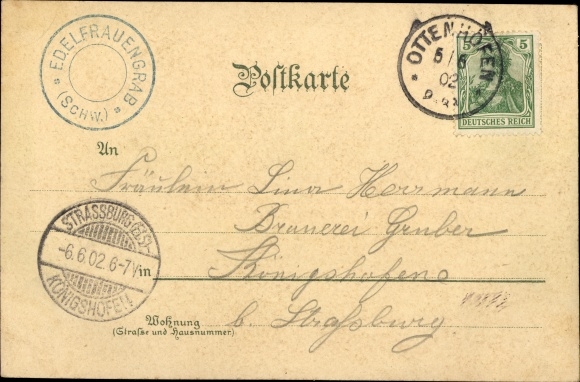 * EDELFRAUENGRAB *
(SCHW.)
Postkarte
* OTTENHÖFEN *
5/6
02
5 5
DEUTSCHES REICH
An
Fräulein Lina Herrmann
Brauerei Gruber
STRASSBURG (ELS)
-6.6.02.6-7V
KÖNIGSHOFEN
in
Königshofen
Wohnung
(Straße und Hausnummer)
b. Straßburg